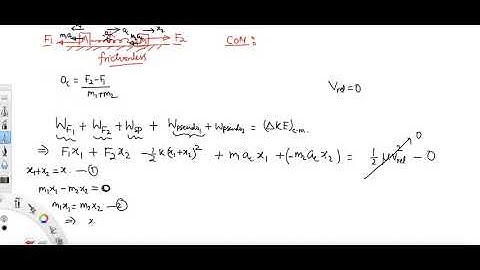 F1 m1 a_c a_c x2 F2 COM:
frictionless
a_c = F2-F1 / m1+m2
V_rel = 0
W_F1 + W_F2 + W_sp + W_pseudo1 + W_pseudo2 = (ΔKE)_c-m.
0
⇒ F1x1 + F2x2 - 1/2 k(x1+x2)² + m a_c x1 + (-m2 a_c x2) = 1/2 μV²_rel - 0
x1+x2 = x - ①
m1x1 - m2x2 = 0
m1x1 = m2x2 - ②
⇒ x